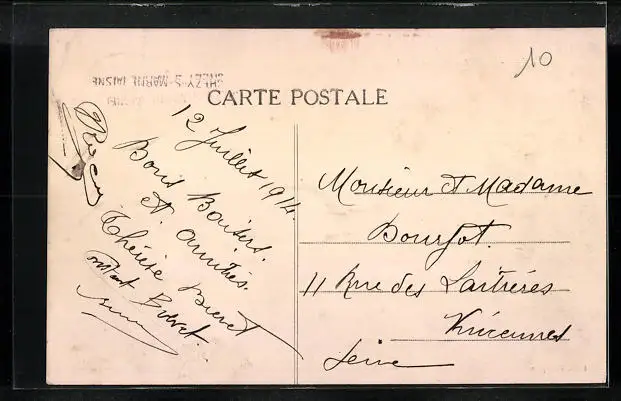 10
CHÉZY-S-MARNE (AISNE
CARTE POSTALE
12 Juillet 1914.
Bons Baisers.
et amitiés.
Thérèse Buret
Buret
Monsieur et Madame
Boursot
11 Rue des Laitières
Vincennes
Seine